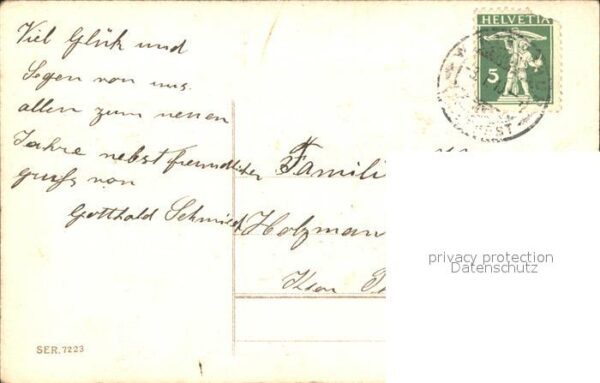 Viel Glück und
Segen von uns
allen zum neuen
Jahre nebst freundlicher
gruß von
Gotthold Schmid
HELVETIA
5
Famili
Holzman
privacy protection
Datenschutz
SER. 7223